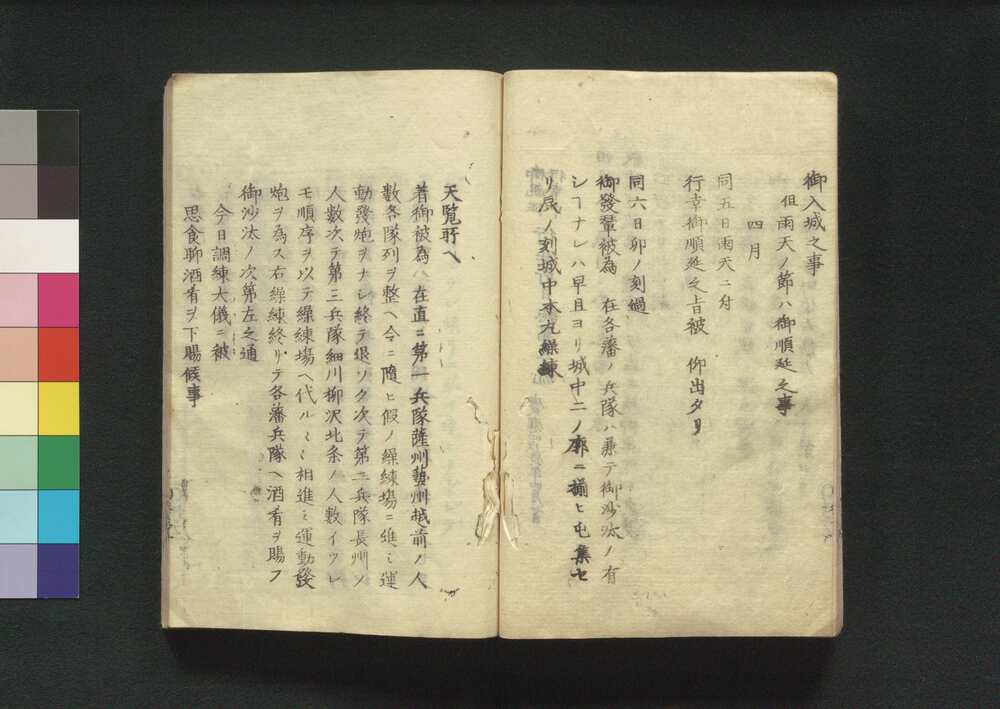 御入城之事
但雨天ノ節ハ御順延之事
四月
同五日雨天ニ付
行幸御順延之旨被 仰出タリ
同六日卯ノ刻過
御發輦被為 在各藩ノ兵隊ハ兼テ御沙汰ノ有
シヿナレハ早旦ヨリ城中二ノ廓ニ揃ヒ屯集セ
リ辰ノ刻城中本丸繰練
天覧所へ
着御被為 在直ニ第一兵隊薩州藝州越前ノ人
數各隊列ヲ整へ令ニ隨ヒ假ノ繰練場ニ進ミ運
動發炮ヲナシ終テ退ソク次テ第二兵隊長州ノ
人數次テ第三兵隊細川柳沢北条ノ人數イツレ
モ順序ヲ以テ繰練場へ代ル〻〻相進ミ運動發
炮ヲ為ス右繰練終リテ各藩兵隊へ酒肴ヲ賜フ
御沙汰ノ次第左之通
今日調練大儀ニ被
思食聊酒肴ヲ下賜候事